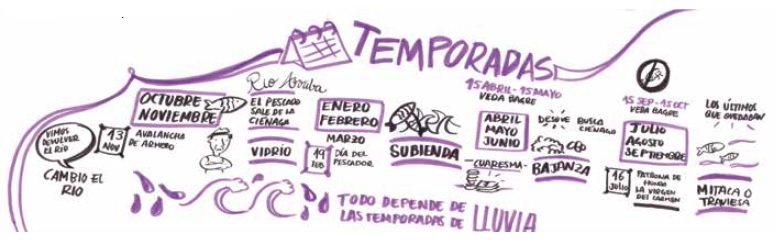 TEMPORADAS
VIMOS
DEVOLVER
EL RÍO
CAMBIO EL
RIO
13
NOV
OCTUBRE
NOVIEMBRE
AVALANCHA
DE ARMERO
Rio Arriba
EL PESCADO
SALE DE LA
CIÉNAGA
VIDRIO
ENERO
FEBRERO
MARZO
19
FEB
DÍA DEL
PESCADOR
SUBIENDA
15 ABRIL - 15 MAYO
VEDA BAGRE
ABRIL
MAYO
JUNIO
CUARESMA
DESOVE
BUSCA
CIÉNAGA
BAJANZA
15 SEP - 15 OCT
VEDA BAGRE
JULIO
AGOSTO
SEPTIEMBRE
16
Julio
PATRONA DE
HONDA
LA VIRGEN
DEL CARMEN
LOS ÚLTIMOS
QUE QUEDARON
MITACA O
TRAVIESA
TODO DEPENDE DE
LAS TEMPORADAS DE LLUVIA